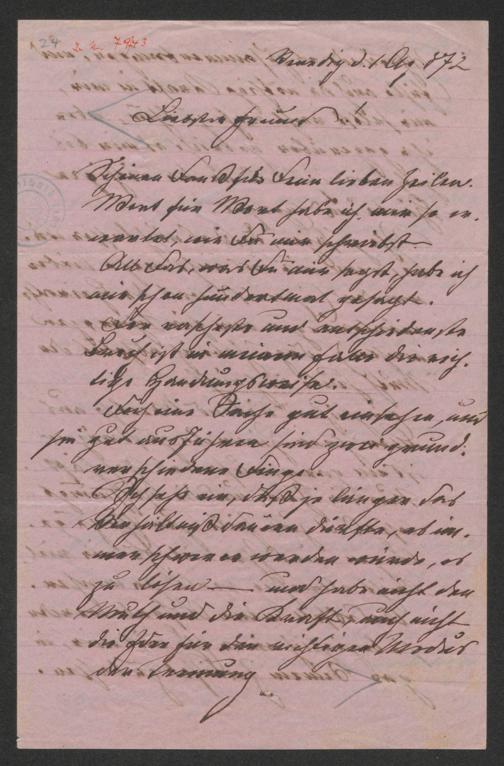 24 I. N. 7943
Venedig d. 1 Ap 872
Liebster Freund!
Schönen Dank für Deine lieben Zeilen.
Wort für Wort habe ich mir so er-
wartet, wie Du mir schreibst —
All das, was Du mir sagst, habe ich
mir schon hundertmal gesagt.
Der rascheste und entschiedenste
Bruch ist in meinem Falle die rich-
tige Handlungsweise.
Doch eine Sache gut einsehen, und
sie gut ausführen sind zwei grund-
verschiedene Dinge.
Ich sehe ein, daß je länger das
Verhältniß dauern dürfte, es im-
mer schwerer werden würde, es
zu lösen — und habe nicht den
Muth und die Kraft, auch nicht
die Idee für den richtigen Modus
der Trennung